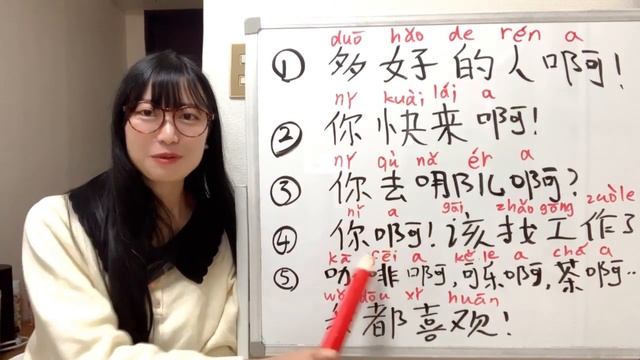 duō hǎo de rén a
① 多好的人啊!
nǐ kuài lái a
② 你快来啊!
nǐ qù nǎ ér a
③ 你去哪儿啊?
nǐ a gāi zhǎo gōng zuòle
④ 你啊!该找工作了
kā fēi a kě le a chá a
⑤ 咖啡啊,可乐啊,茶啊..
wǒ dōu xǐ huān
我都喜欢!